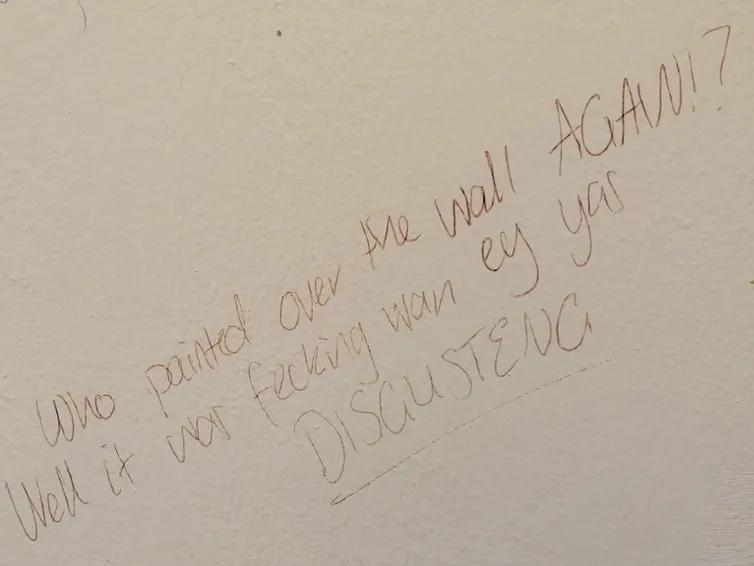 Who painted over the wall AGAIN!?
Well it was fecking wan ey yas
DISGUSTENG